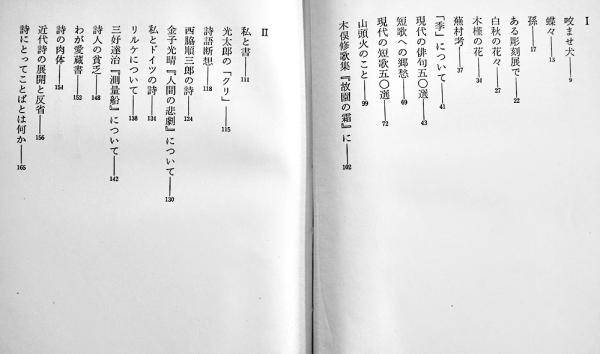 I
咬ませ犬——9
蝶々——13
孫——17
ある彫刻展で——22
白秋の花々——27
木槿の花——34
蕪村考——37
「季」について——41
現代の俳句五〇選——43
短歌への郷愁——69
現代の短歌五〇選——72
山頭火のこと——99
木俣修歌集『故園の霜』に——102
II
私と書——111
光太郎の「クリ」——115
詩語断想——118
西脇順三郎の詩——124
金子光晴『人間の悲劇』について——130
私とドイツの詩——134
リルケについて——138
三好達治『測量船』について——142
詩人の貧乏——148
わが愛蔵書——152
詩の肉体——154
近代詩の展開と反省——156
詩にとってことばとは何か——165